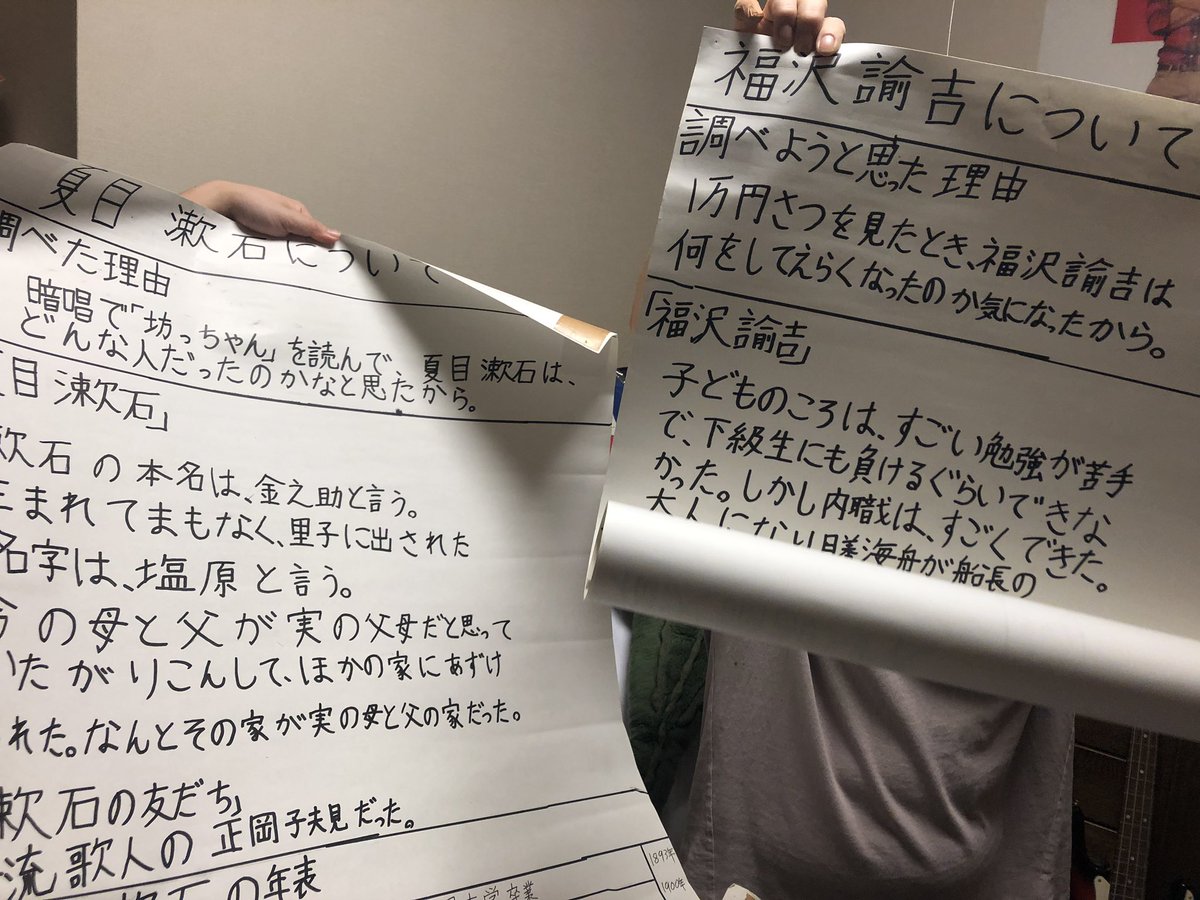 夏目漱石について
調べた理由
暗唱で「坊っちゃん」を読んで、夏目漱石は、
どんな人だったのかなと思たから。
目漱石」
漱石の本名は、金之助と言う。
まれてまもなく、里子に出された
名字は、塩原と言う。
今の母と父が実の父母だと思って
いたがりこんして、ほかの家にあずけ
れた。なんとその家が実の母と父の家だった。
漱石の友だち」
流歌人の正岡子規だった。
石の年表
1893年
大学卒業
1900年
福沢諭吉について
調べようと思った理由
1万円さつを見たとき、福沢諭吉は
何をしてえらくなったのか気になったから。
「福沢諭吉」
子どものころは、すごい勉強が苦手
で、下級生にも負けるぐらいできな
かった。しかし内職は、すごくできた。
大人になり勝海舟が船長の